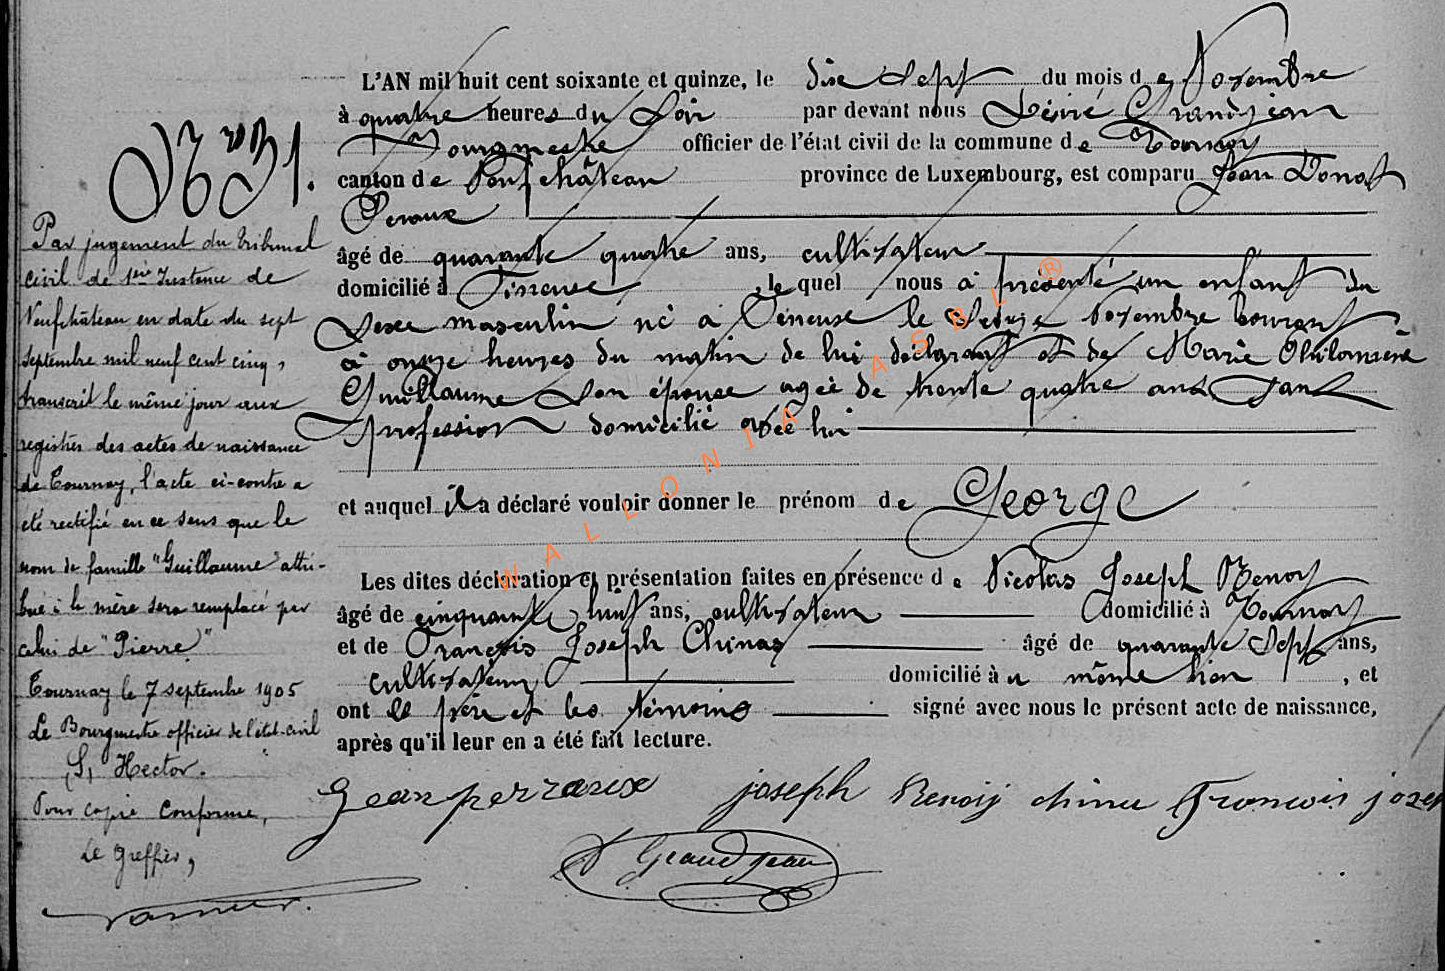 L'AN mil huit cent soixante et quinze, le dix sept du mois de Novembre
à quatre heures du Soir par devant nous Désiré Grandjean
Bourgmestre officier de l'état civil de la commune de Tournay
canton de Neufchâteau province de Luxembourg, est comparu Jean Donat
Peraux
âgé de quarante quatre ans, cultivateur
domicilié à Tineuse, lequel nous a présenté un enfant du
Sexe masculin né à Tineuse le Seize Novembre courant
à onze heures du matin de lui déclarant et de Marie Philomène
Guillaume Son épouse agée de trente quatre ans Sans
profession domicilié avec lui
et auquel il a déclaré vouloir donner le prénom de George
Les dites déclaration et présentation faites en présence de Nicolas Joseph Benoy
âgé de cinquante huit ans, cultivateur domicilié à Tournay
et de François Joseph Chinas âgé de quarante Sept ans,
cultivateur domicilié à u même lieu, et
ont le père et les témoins signé avec nous le présent acte de naissance,
après qu'il leur en a été fait lecture.
Jean perraux joseph Benoij chinu François josep
D Grandjean
N° 31.
Par jugement du tribunal
civil de 1ère Instance de
Neufchâteau en date du sept
septembre mil neuf cent cinq,
transcrit le même jour aux
registres des actes de naissance
de Tournay, l'acte ci-contre a
été rectifié en ce sens que le
nom de famille "Guillaume" attri-
bué à la mère sera remplacé par
celui de "Pierre"
Tournay le 7 septembre 1905
Le Bourgmestre officier de l'état-civil
(S) Hector.
Pour copie conforme,
Le greffier,
WALLONIA ASBL ®